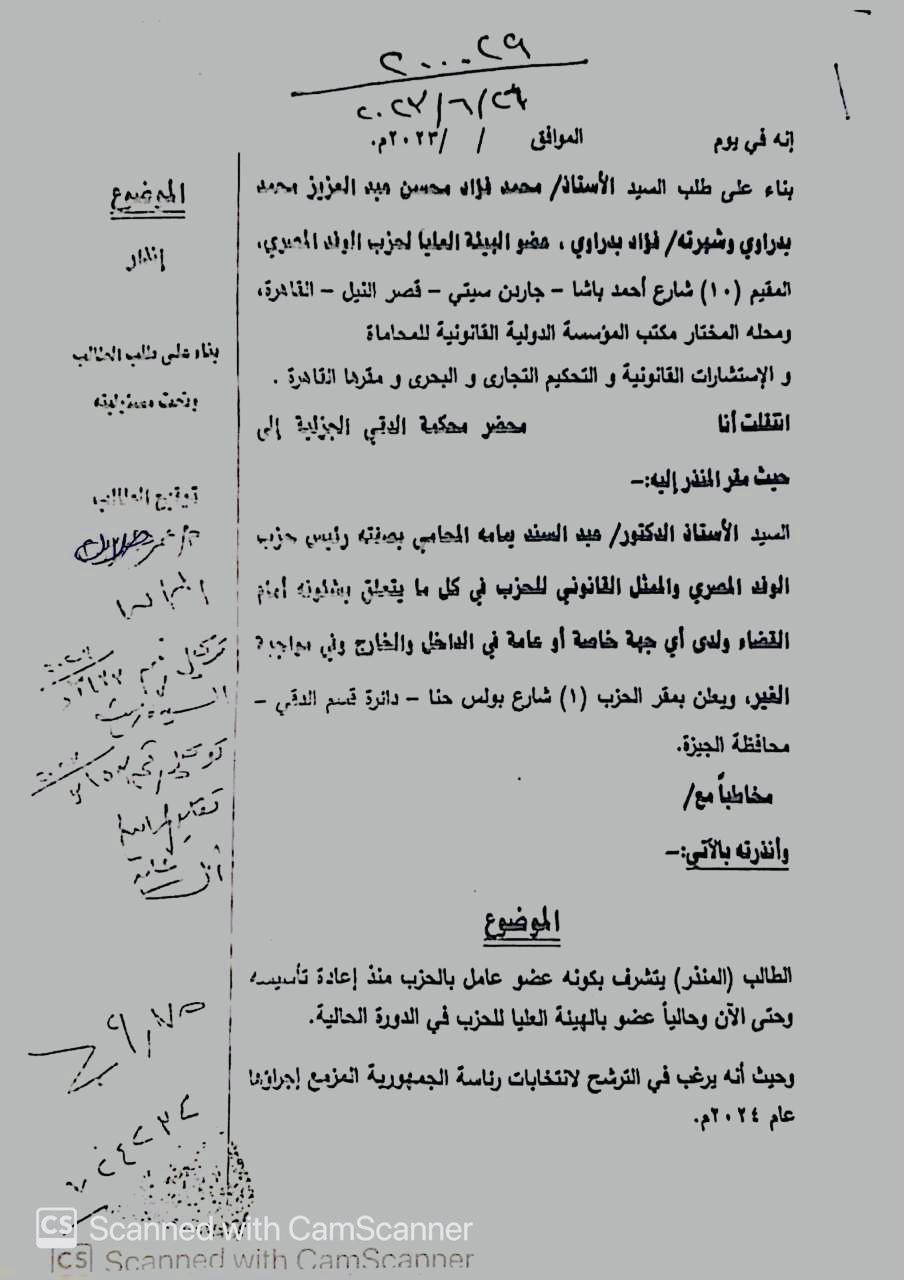 ٢٠٠٢٩
٢٠٢٣/٦/٢٦
إنه في يوم الموافق / /٢٠٢٣م.
بناء على طلب السيد الأستاذ/ محمد فؤاد محسن عبد العزيز محمد
بدراوي وشهرته/ فؤاد بدراوي ، عضو الهيئة العليا لحزب الوفد المصري،
المقيم (١٠) شارع أحمد باشا – جاردن سيتي – قصر النيل – القاهرة،
ومحله المختار مكتب المؤسسة الدولية القانونية للمحاماة
و الإستشارات القانونية و التحكيم التجارى و البحرى و مقرها القاهرة .
انتقلت أنا محضر محكمة الدقي الجزئية إلى
حيث مقر المنذر إليه:–
السيد الأستاذ الدكتور/ عبد السند يمامه المحامي بصفته رئيس حزب
الوفد المصري والممثل القانوني للحزب في كل ما يتعلق بشئونه أمام
القضاء ولدى أي جهة خاصة أو عامة في الداخل والخارج وفي مواجهة
الغير، ويعلن بمقر الحزب (١) شارع بولس حنا – دائرة قسم الدقي –
محافظة الجيزة.
مخاطباً مع/
وأنذرته بالآتي:–
الموضوع
الطالب (المنذر) يتشرف بكونه عضو عامل بالحزب منذ إعادة تأسيسه
وحتى الآن وحالياً عضو بالهيئة العليا للحزب في الدورة الحالية.
وحيث أنه يرغب في الترشح لانتخابات رئاسة الجمهورية المزمع إجراؤها
عام ٢٠٢٤م.
الموضوع
إنذار
بناء على طلب الطالب
وتحت مسئوليته
توقيع الطالب
توكيل رقم
CS Scanned with CamScanner
CS Scanned with CamScanner